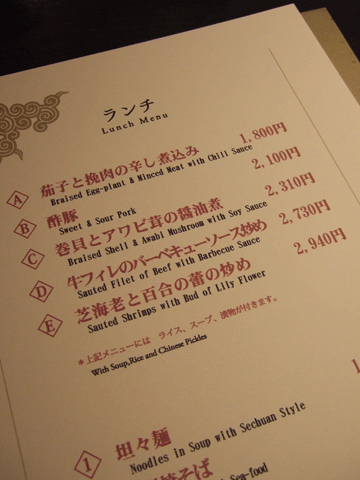 ランチ
Lunch Menu
A 茄子と挽肉の辛し煮込み 1,800円
Braised Egg-plant & Minced Meat with Chili Sauce
B 酢豚 2,100円
Sweet & Sour Pork
C 巻貝とアワビ茸の醤油煮 2,310円
Braised Shell & Awabi Mushroom with Soy Sauce
D 牛フィレのバーベキューソース炒め 2,730円
Sauted Filet of Beef with Barbecue Sauce
E 芝海老と百合の蕾の炒め 2,940円
Sauted Shrimps with Bud of Lily Flower
*上記メニューには ライス、スープ、漬物が付きます。
With Soup,Rice and Chinese Pickles
1 坦々麺
Noodles in Soup with Sechuan Style
焼そば
Sea-food